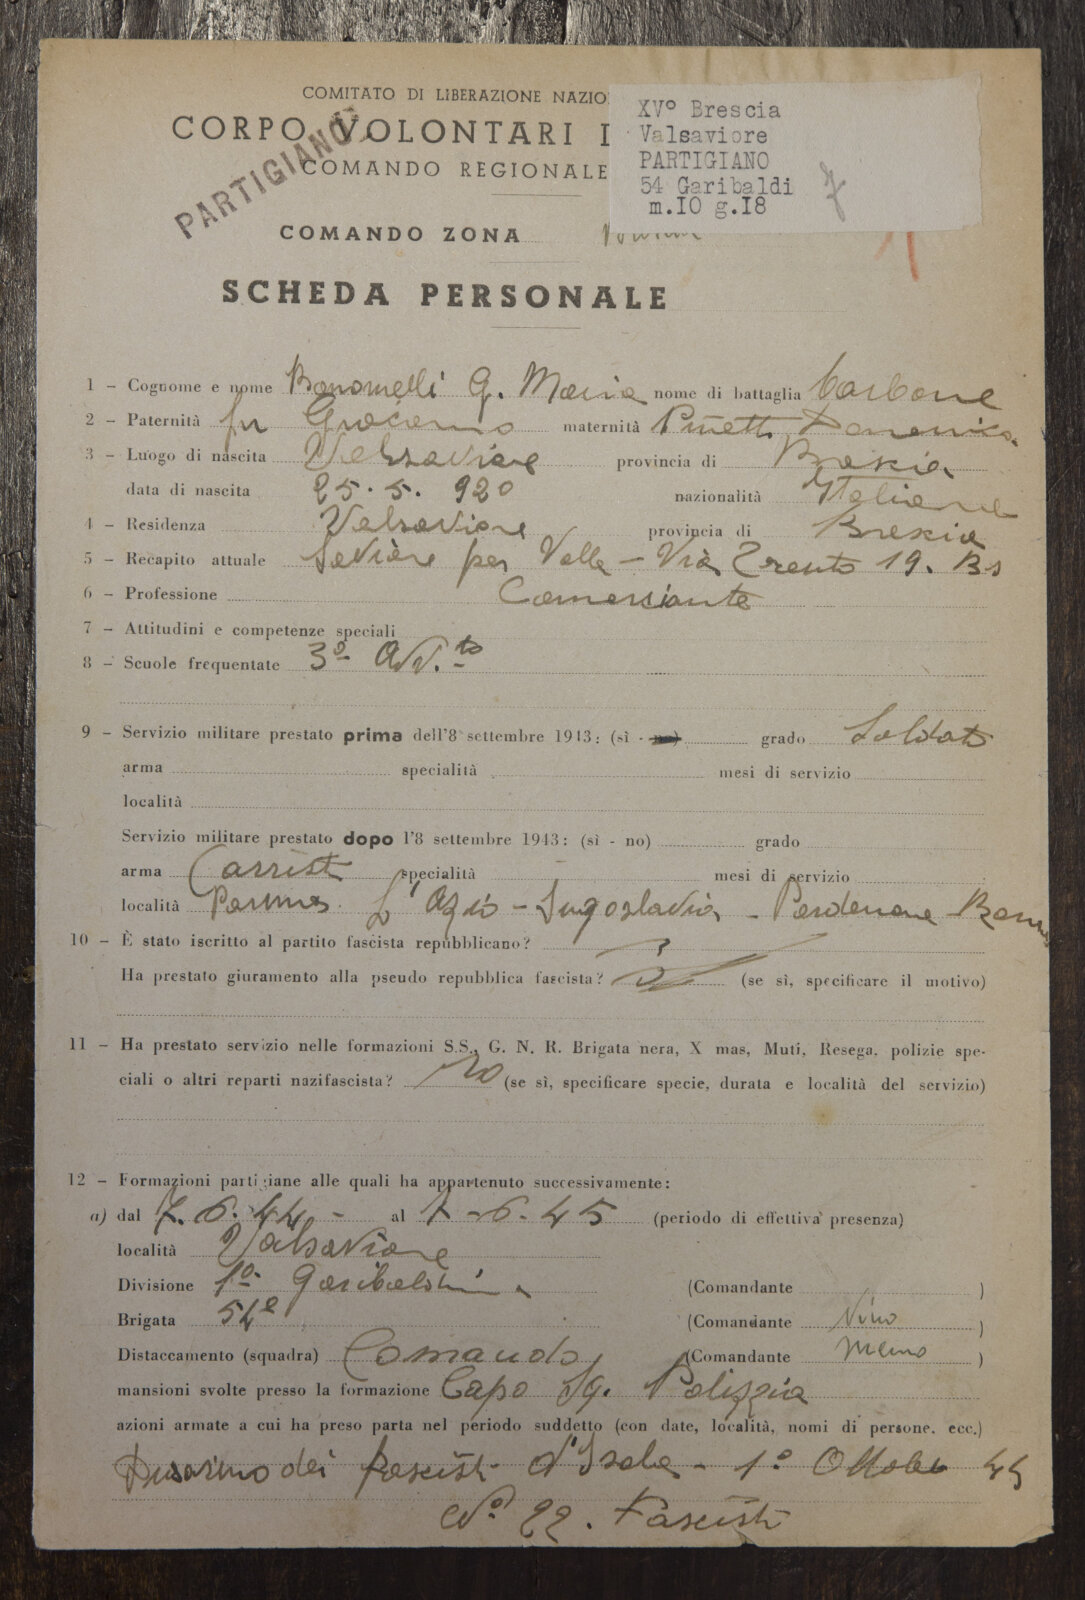 COMITATO DI LIBERAZIONE NAZIO
CORPO VOLONTARI
COMANDO REGIONALE
PARTIGIANO
XVº Brescia
Valsaviore
PARTIGIANO
54 Garibaldi
m.IO g.I8
7
COMANDO ZONA
SCHEDA PERSONALE
1 - Cognome e nome Bonomelli G. Maria nome di battaglia Carbone
2 - Paternità fu Giacomo maternità Domenica
3 - Luogo di nascita Valsaviore provincia di Brescia
data di nascita 25.5.920 nazionalità Italiana
4 - Residenza Valsaviore provincia di Brescia
5 - Recapito attuale Saviore per Valle - Via Trento 19. Bs
6 - Professione Comersiante
7 - Attitudini e competenze speciali
8 - Scuole frequentate 3º Avv.to
9 - Servizio militare prestato prima dell'8 settembre 1943: (sì - no) grado Soldato
arma specialità mesi di servizio
località
Servizio militare prestato dopo l'8 settembre 1943: (sì - no) grado
arma Carrist specialità mesi di servizio
località Parma L'Azio - Jugoslavia - Pordenone
10 - È stato iscritto al partito fascista repubblicano?
Ha prestato giuramento alla pseudo repubblica fascista? (se sì, specificare il motivo)
11 - Ha prestato servizio nelle formazioni S.S., G. N. R. Brigata nera, X mas, Muti, Resega, polizie spe-
ciali o altri reparti nazifascista? No (se sì, specificare specie, durata e località del servizio)
12 - Formazioni partigiane alle quali ha appartenuto successivamente:
a) dal 7.6.44 - al 1-6-45 (periodo di effettiva presenza)
località Valsaviore
Divisione 1º Garibaldina (Comandante )
Brigata 54ª (Comandante Nino )
Distaccamento (squadra) Comando (Comandante Memo )
mansioni svolte presso la formazione Capo Sq. Polizzia
azioni armate a cui ha preso parta nel periodo suddetto (con date, località, nomi di persone, ecc.)
Disarmo dei fascisti d'Isola - 1º Ottobre 44
Nº 22. Fascisti